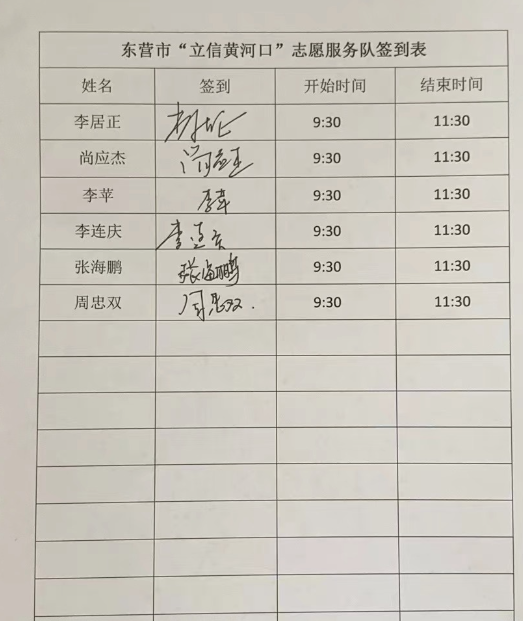 东营市“立信黄河口”志愿服务队签到表
姓名 签到 开始时间 结束时间
李居正 9:30 11:30
尚应杰 9:30 11:30
李苹 李苹 9:30 11:30
李连庆 李连庆 9:30 11:30
张海鹏 张海鹏 9:30 11:30
周忠双 周忠双 9:30 11:30